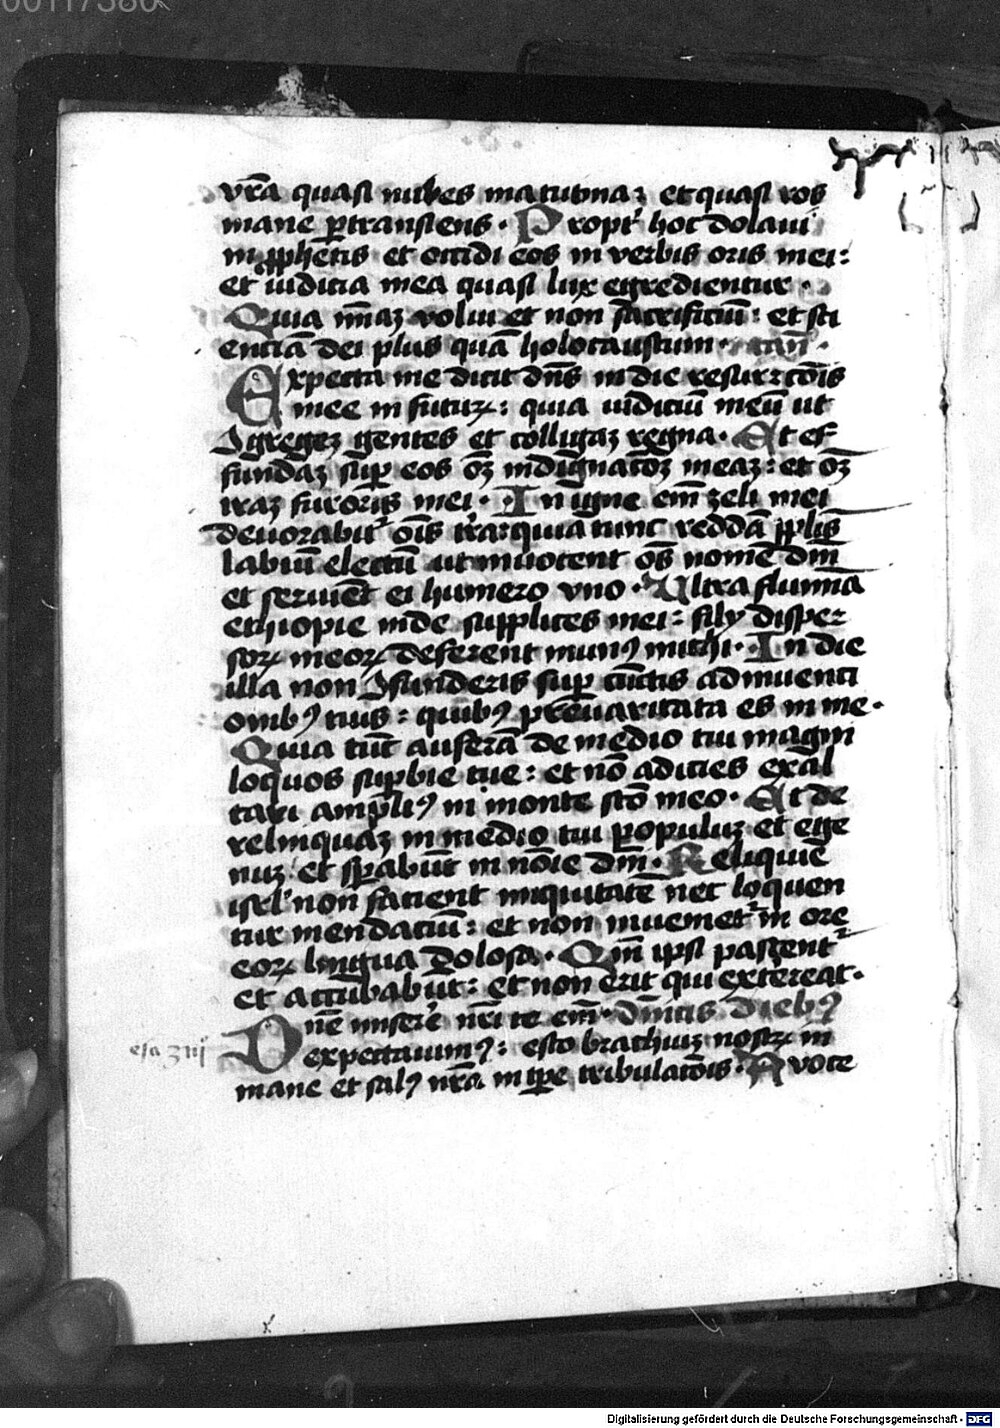 00117380
vr̄a quasi nubes matutinaȝ et quasi ros
mane ꝑtransiens · Propt̉ hoc dolaui
in ꝓphetis et occidi eos in verbis oris mei :
et iudicia mea quasi lux egredientur ·
Quia mīaȝ volui et non sacrificiū : et sci
entiā dei plus quā holocaustum ·
Expecta me dicit dn̄s in die resurrectōis
mee in futurꝝ : quia iudiciū meū ut
ↄgregeȝ gentes et colligaȝ regna · Et ef
fundaȝ suꝑ eos oēȝ indignatōeȝ meaȝ : et oēȝ
iraȝ furoris mei · In igne em̄ zeli mei
deuorabit̉ oīs tr̄a : quia tunc reddā ꝓplis
labiū electū ut inuocent oēs nomē dn̄i
et seruiēt ei humero vno · Ultra flumīa
ethiopie inde supplices mei : filij disper
sorꝝ meorꝝ deferent munꝰ michi · In die
illa non ↄfunderis suꝑ cūctis adinuenti
onibꝰ tuis : quibꝰ preuaricata es in me ·
Quia tūc auferā de medio tui magni
loquos suꝑbie tue : et nō adicies exal
tari ampliꝰ in monte sc̄o meo · Et de
relinquaȝ in medio tui populuȝ et ege
nuȝ et sꝑabūt in nōie dn̄i · Reliquie
isrl̉ non facient iniquitatē nec loquen
tur mendaciū : et non inueniet̉ in ore
eorꝝ lingua dolosa · Qm̄ ipsi pascent̉
et accubabūt : et non erit qui extereat ·
Dn̄e miserē nr̄i te em̄ · dn̄icis diebꝰ
expectauimꝰ : esto brachiuȝ nostrꝝ in
mane et salꝰ nr̄a in tp̄e tribulatōis · A voce
esa 33
Digitalisierung gefördert durch die Deutsche Forschungsgemeinschaft - DFG